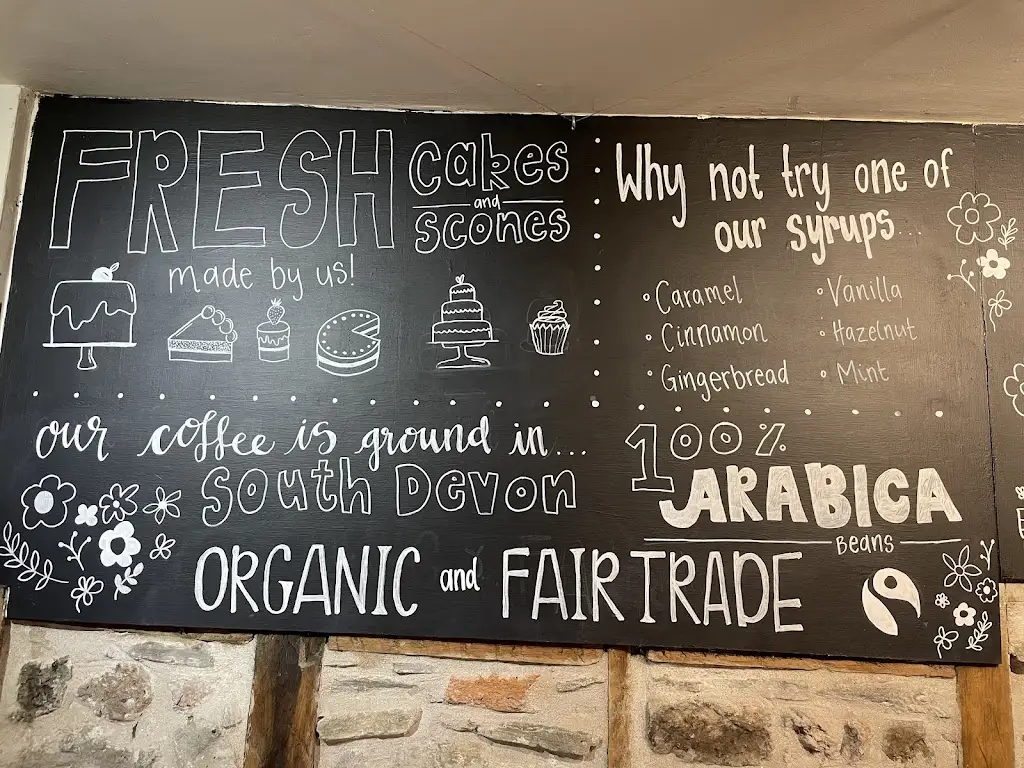 FRESH cakes
and
scones
made by us!
Why not try one of
our syrups...
Caramel
Cinnamon
Gingerbread
Vanilla
Hazelnut
Mint
our coffee is ground in...
South Devon
100%
ARABICA
Beans
ORGANIC and FAIRTRADE